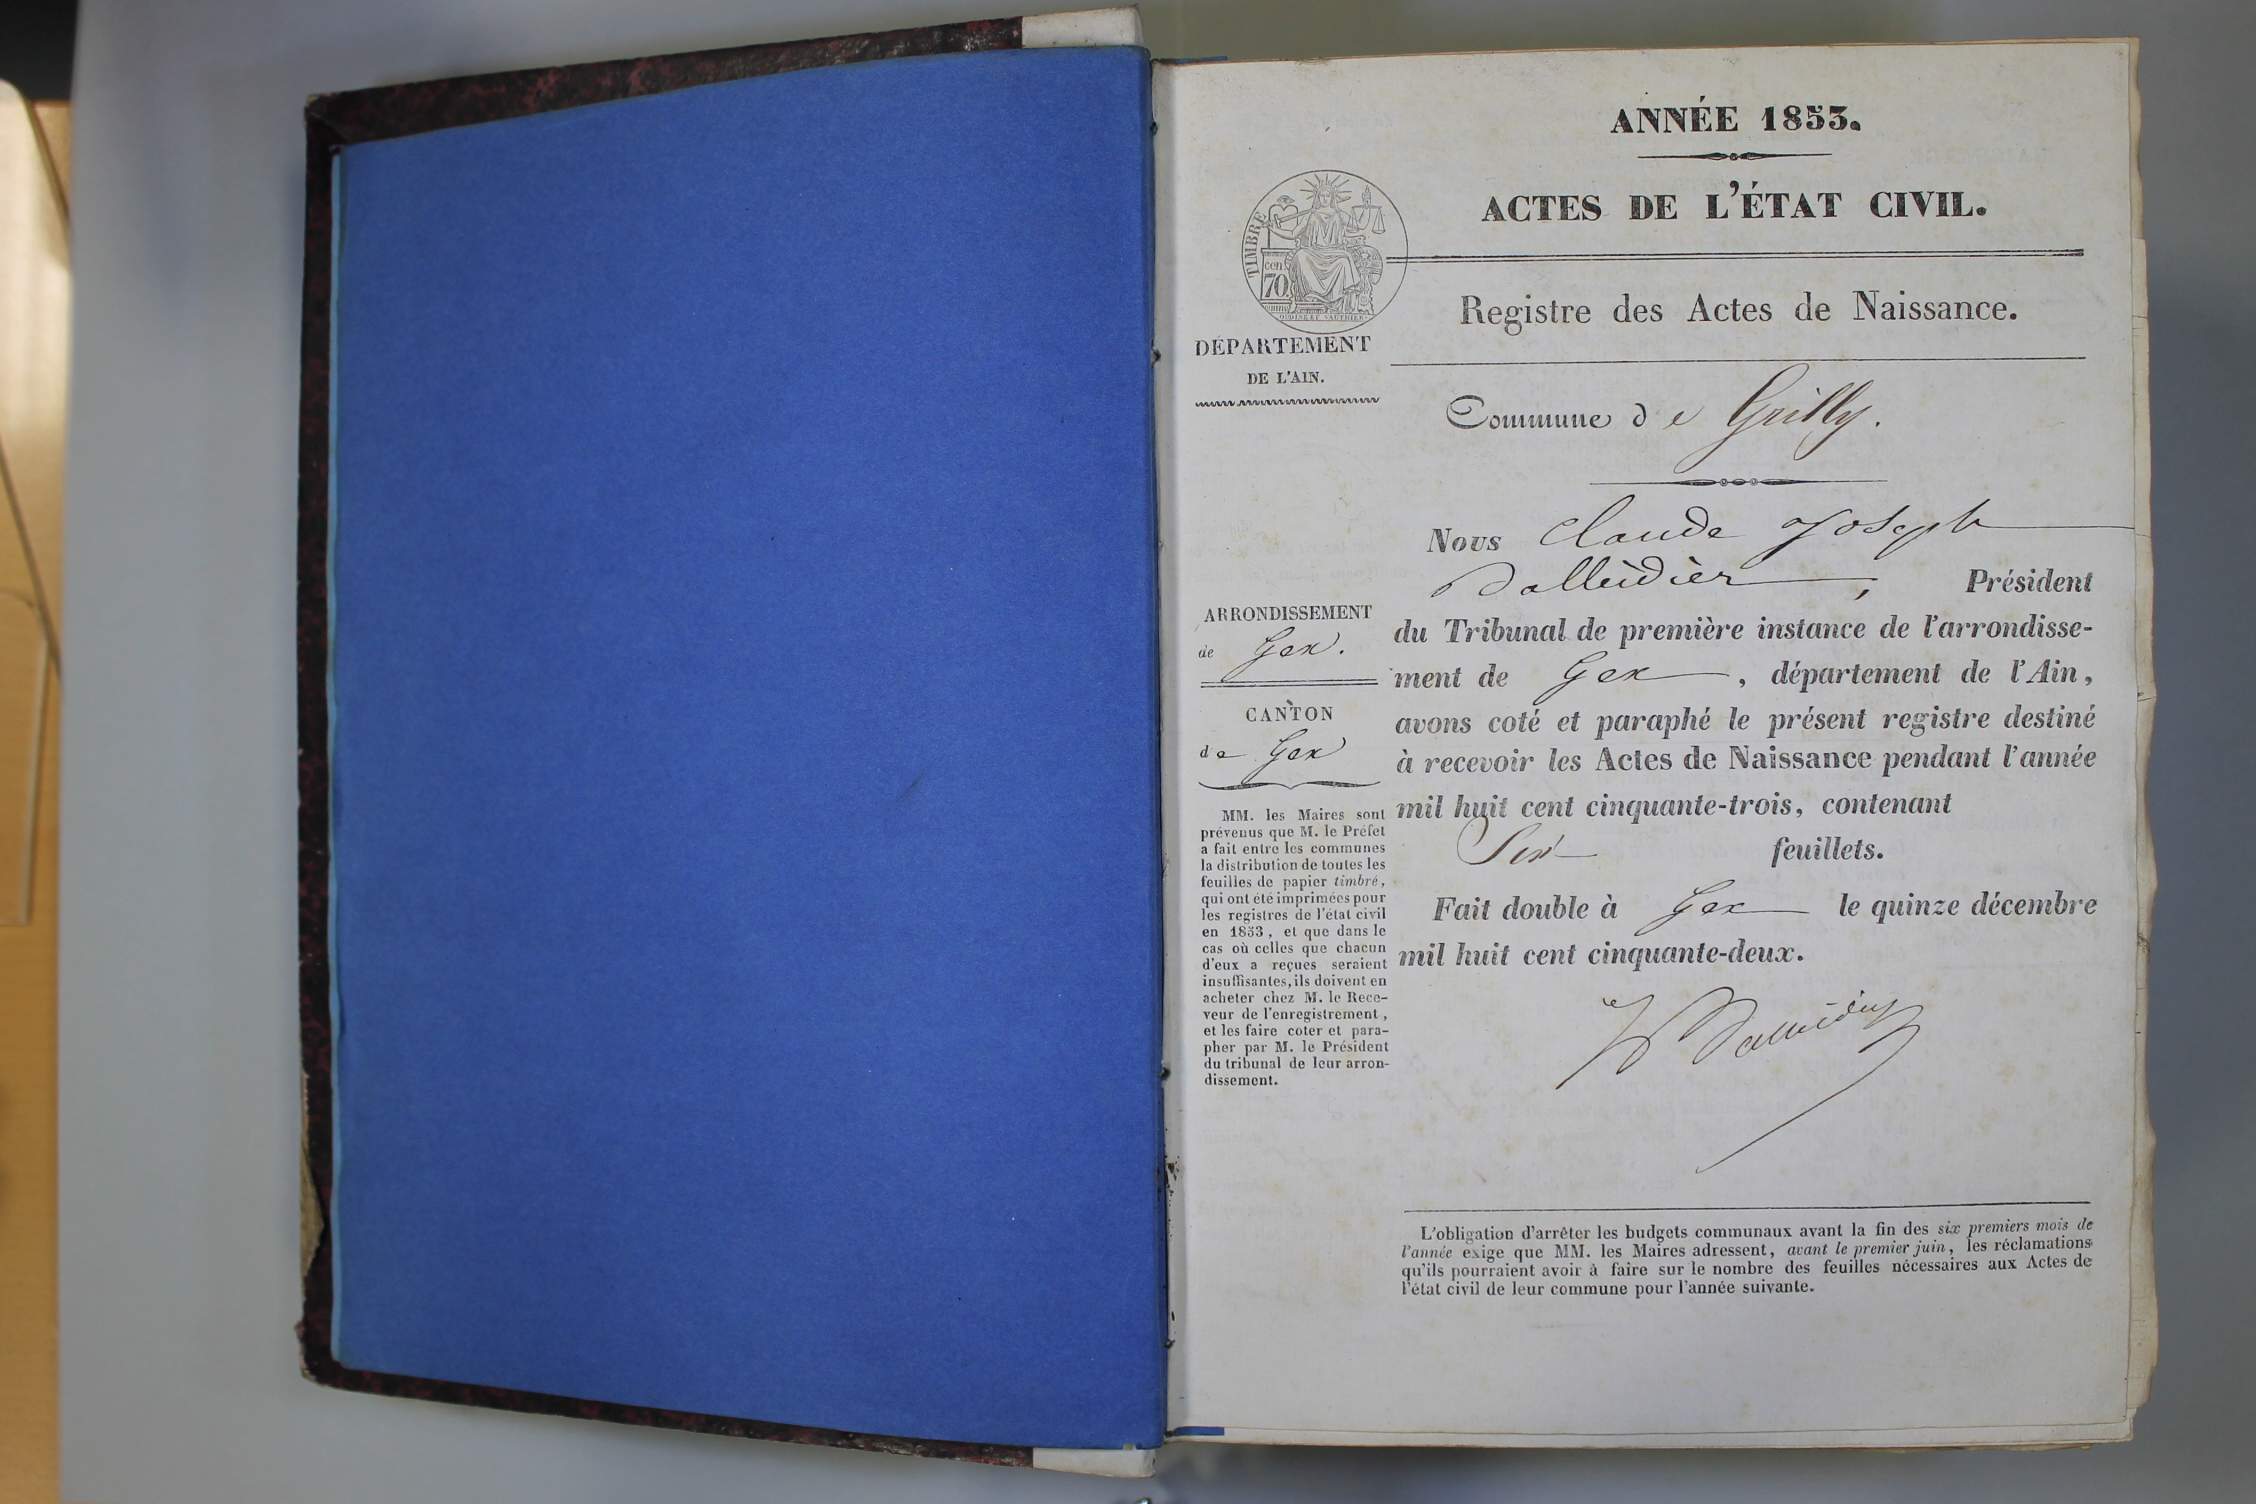 ANNÉE 1853.
ACTES DE L'ÉTAT CIVIL.
TIMBRE
cen.
70
Registre des Actes de Naissance.
DÉPARTEMENT
DE L'AIN.
Commune de Grilly.
Nous Claude Joseph
Dallëidier, Président
du Tribunal de première instance de l'arrondisse-
ment de Gex, département de l'Ain,
avons coté et paraphé le présent registre destiné
à recevoir les Actes de Naissance pendant l'année
mil huit cent cinquante-trois, contenant
Six feuillets.
Fait double à Gex le quinze décembre
mil huit cent cinquante-deux.
ARRONDISSEMENT
de Gex.
CANTON
de Gex
MM. les Maires sont
prévenus que M. le Préfet
a fait entre les communes
la distribution de toutes les
feuilles de papier timbré,
qui ont été imprimées pour
les registres de l'état civil
en 1853, et que dans le
cas où celles que chacun
d'eux a reçues seraient
insuffisantes, ils doivent en
acheter chez M. le Rece-
veur de l'enregistrement,
et les faire coter et para-
pher par M. le Président
du tribunal de leur arron-
dissement.
L'obligation d'arrêter les budgets communaux avant la fin des six premiers mois de
l'année exige que MM. les Maires adressent, avant le premier juin, les réclamations
qu'ils pourraient avoir à faire sur le nombre des feuilles nécessaires aux Actes de
l'état civil de leur commune pour l'année suivante.